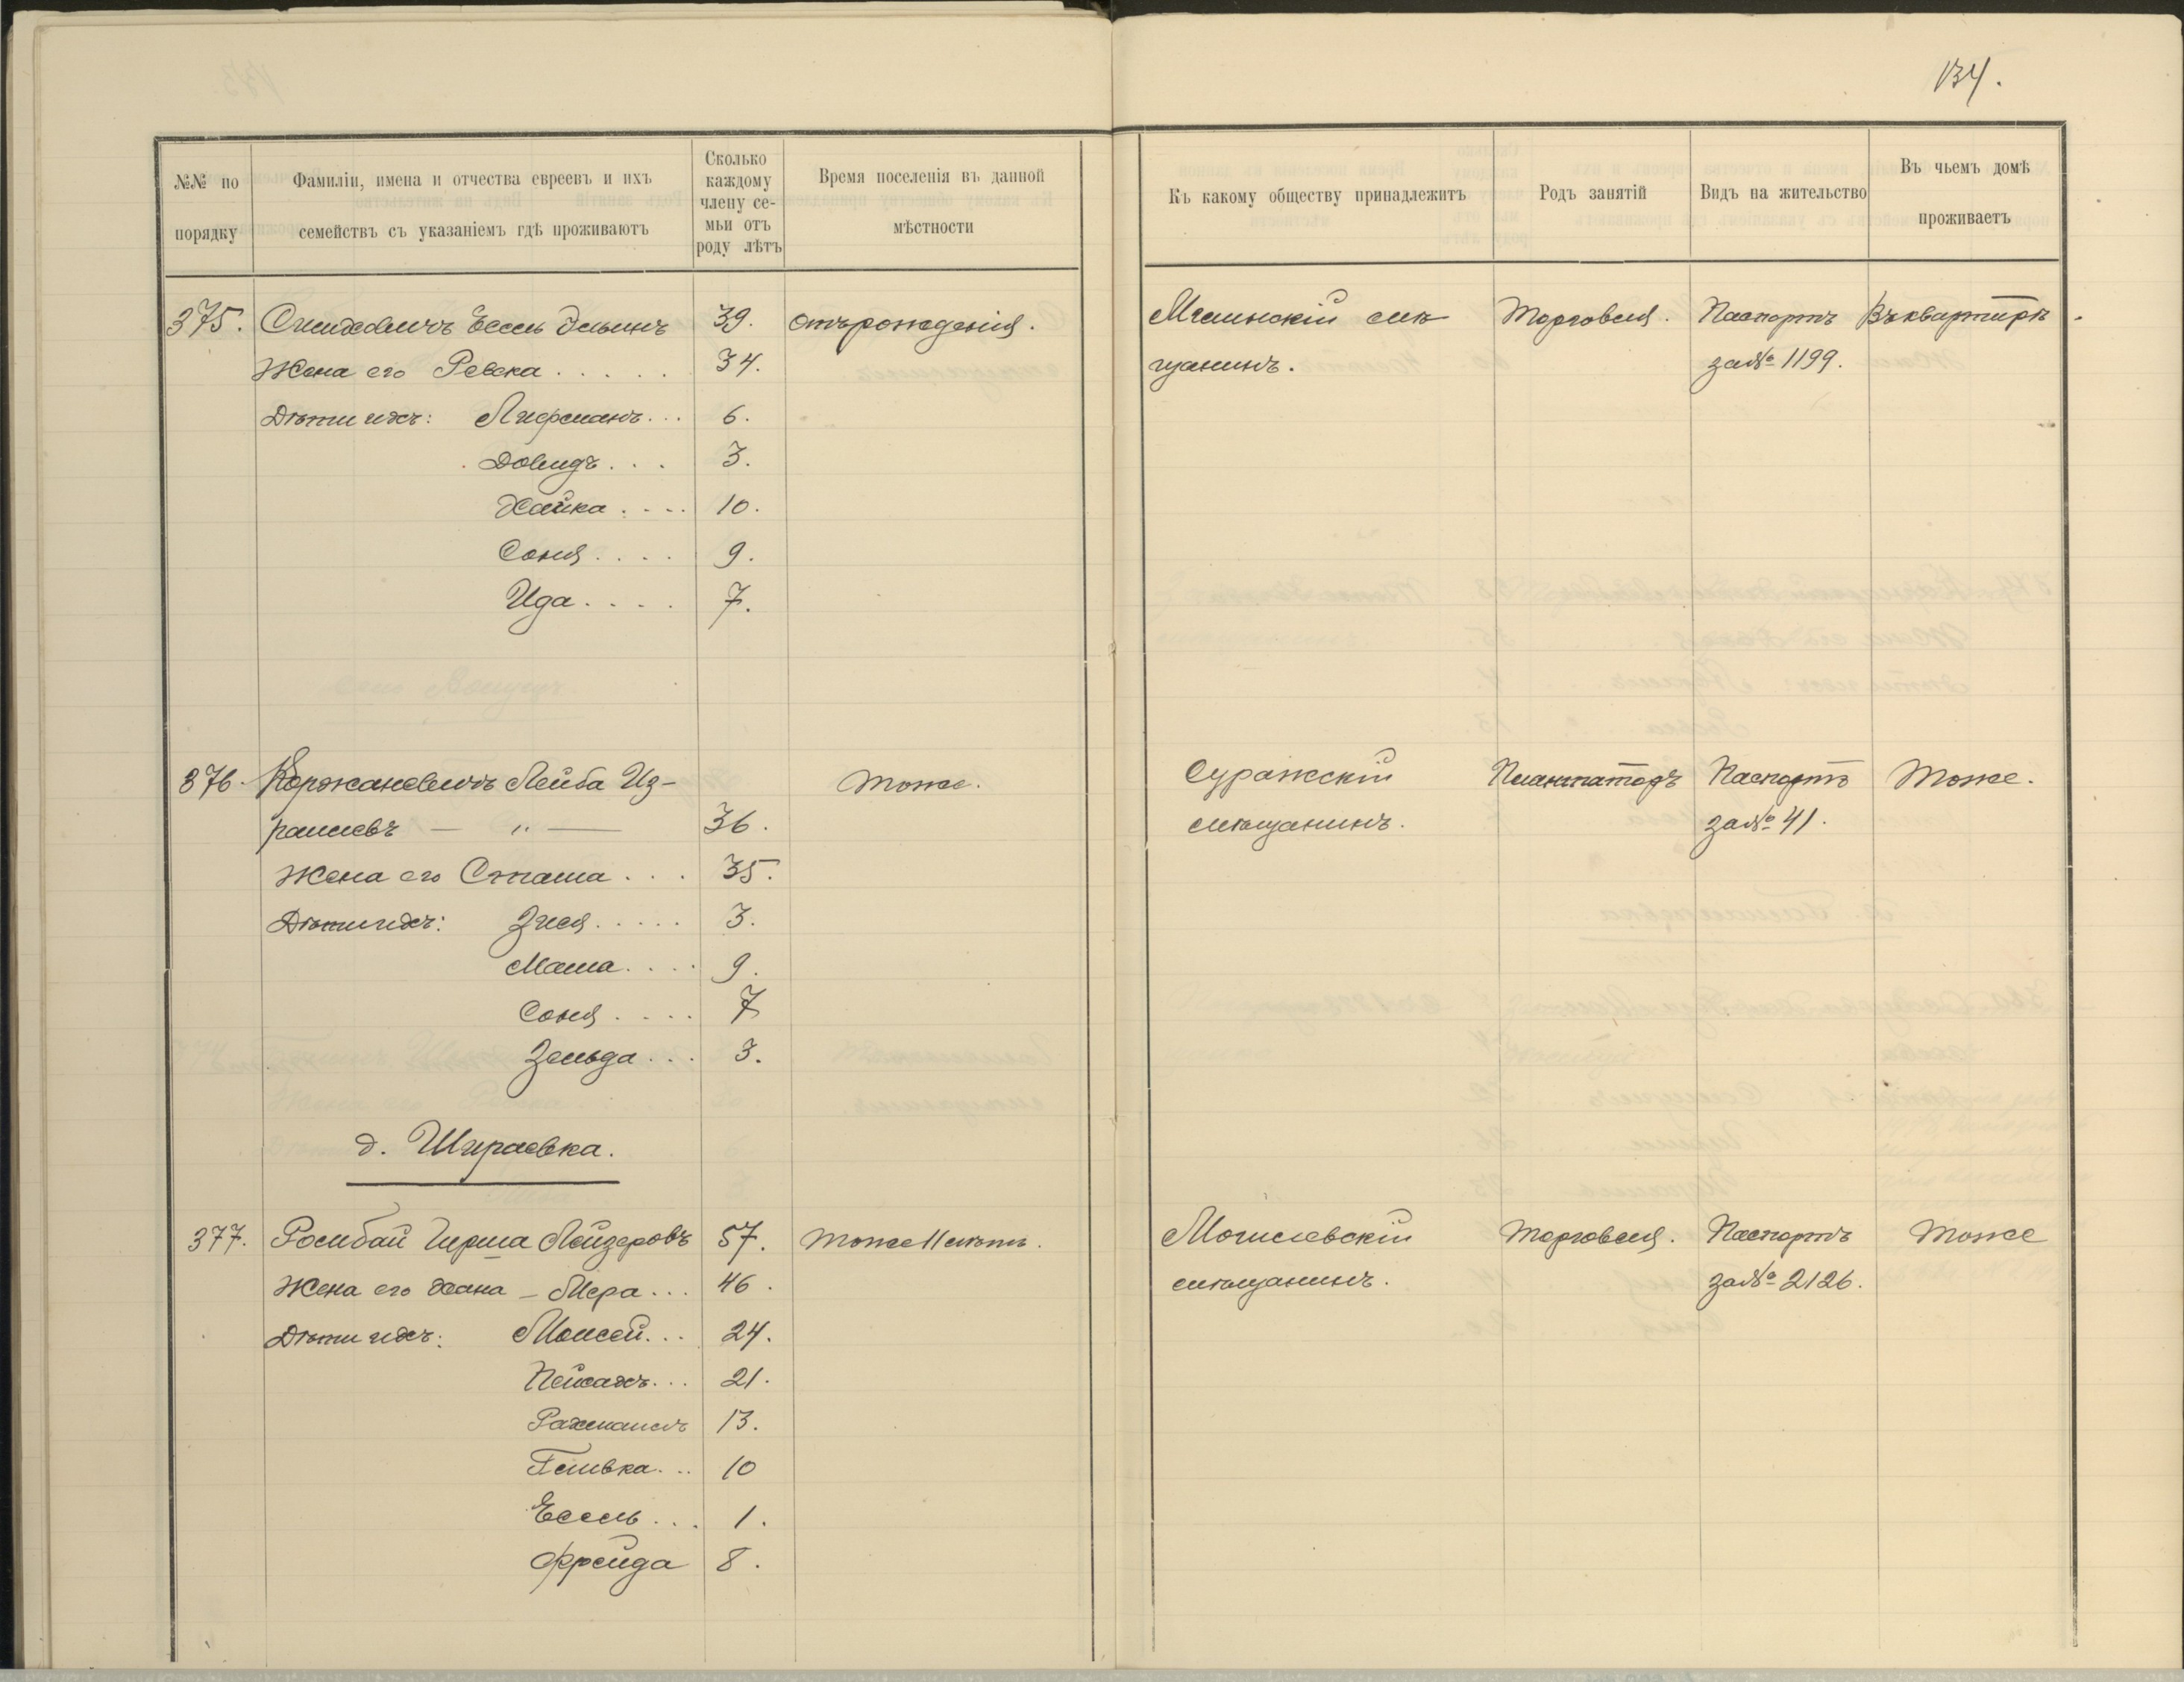 134.
№№ по порядку
Фамиліи, имена и отчества евреевъ и ихъ семействъ съ указаніемъ гдѣ проживаютъ
Сколько каждому члену семьи отъ роду лѣтъ
Время поселенія въ данной мѣстности
Къ какому обществу принадлежитъ
Родъ занятій
Видъ на жительство
Въ чьемъ домѣ проживаетъ
375. Симховичъ Ессель Эльинъ 39. отърожденія. Мглинскій мѣ Торговля. Паспортъ Въ квартирѣ.
Жена его Ревека . . . . . 34. щанинъ. за № 1199.
Дѣти ихъ: Лифманъ . . . 6.
Довидъ . . . 3.
Хайка . . . . 10.
Соня . . . . 9.
Ида . . . . 7.
376. Коржаневичъ Лейба Из- тоже. Суражскій Плантаторъ Паспортъ Тоже.
раилевъ — „ — 36. мѣщанинъ. за № 41.
Жена его Сташа . . . 35.
Дѣти ихъ: Зися . . . . . 3.
Маша . . . . 9.
Соня . . . . 7
Зельда . . . 3.
д. Ширяевка.
377. Гирша Лейзеровъ 57. тоже 11 лѣтъ. Могилевскій Торговля. Паспортъ Тоже
Жена его Хана - Мера . . . 46. мѣщанинъ. за № 2126.
Дѣти ихъ: Моисей . . . 24.
Пейсахъ . . . 21.
Рахмаилъ 13.
Гливка . . . 10
Ессель . . . 1.
Фрейда 8.